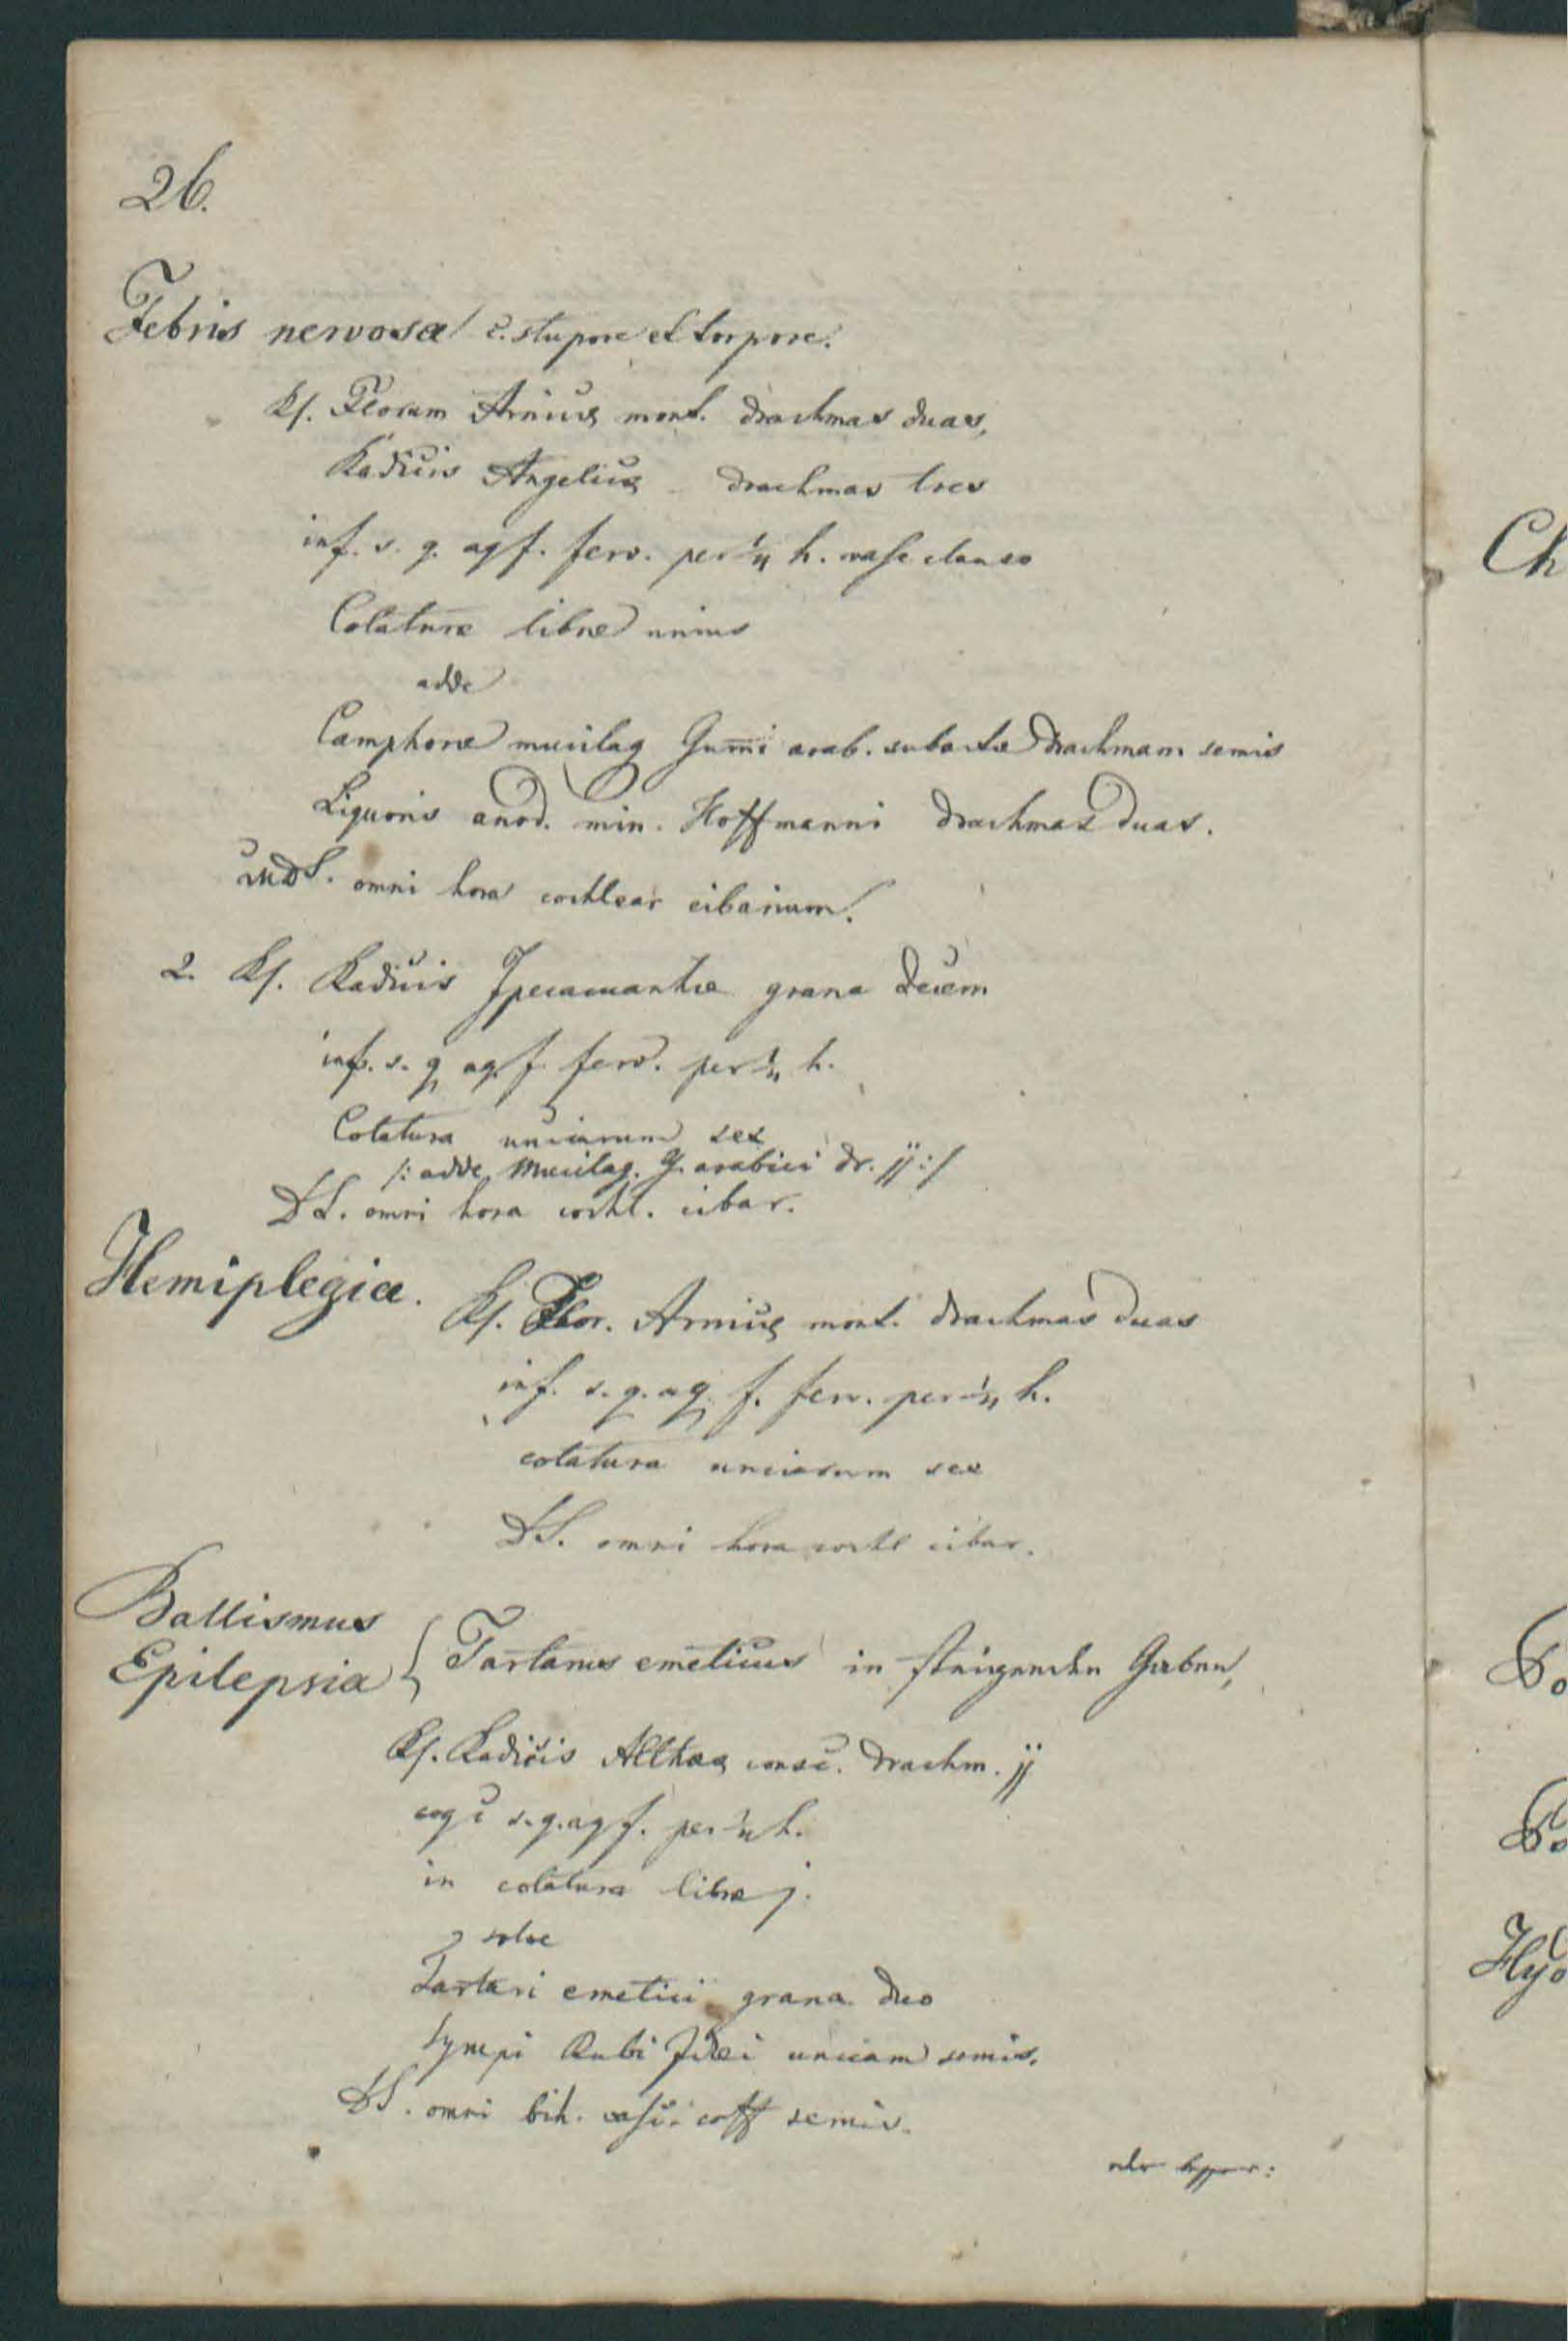 26.
Febris nervosa c. stupore et torpore.
Rp. Florum Arnicæ mont. drachmas duas,
Radicis Angelicæ drachmas tres
inf. s. q. aq f. ferv. per ½ h. vase clauso
Colaturæ libræ unius
adde
Camphoræ mucilag Gumi arab. subactæ drachmam semis
Liquoris anod. min. Hoffmanni drachmas duas.
MDS. omni hora cochlear cibarium.
2. Rp. Radicis Ipecacuanhæ grana decem
inf. s. q aq. f. ferv. per ½ h.
Colatura unciarum sex
/: adde Mucilag. G. arabici dr. jj :/
DS. omni hora cochl. cibar.
Hemiplegia.
Rp. Flor. Arnicæ mont. drachmas duas
inf. s. q. aq. f. ferv. per ½ h.
colatura unciarum sex
DS. omni hora cochl cibar.
Ballismus
Epilepsia { Tartarus emeticus in steigenden Gaben,
Rp. Radicis Altheæ consc. drachm. jj
coq s. q. aq f. per ½ h.
in colatura libræ j.
solve
Tartari emetici grana duo
Syrupi Rubi Idaei unciam semis.
DS. omni bih. coff semis.
oder besser:
Ch
Hyd